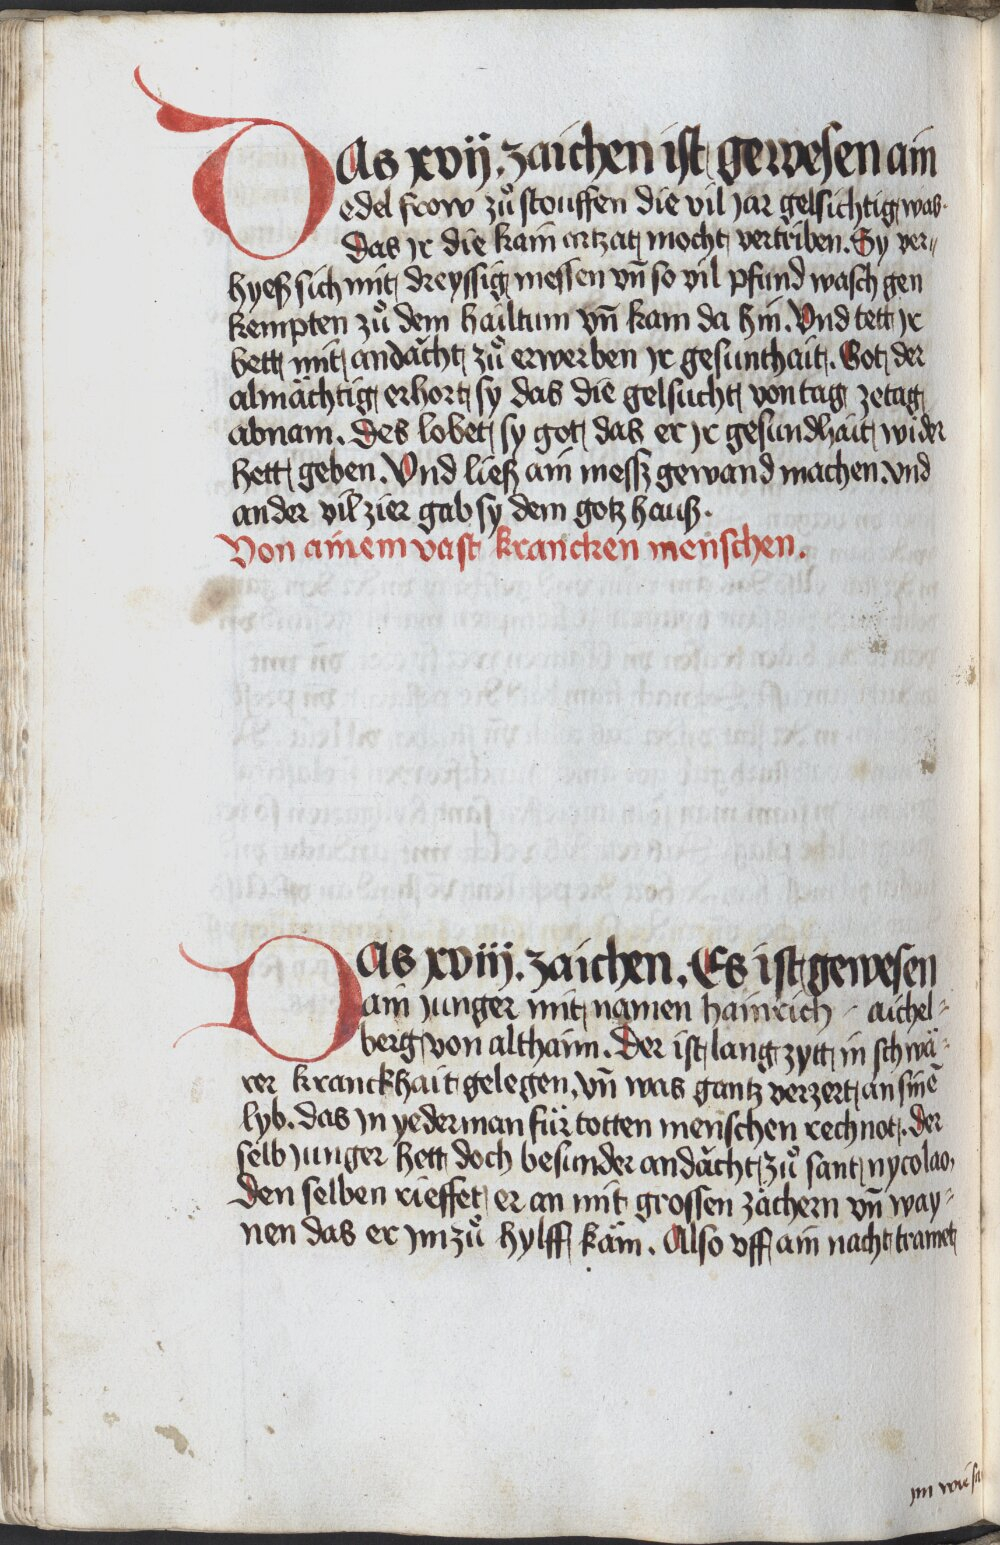 DAs xvij. zaichen ist gewesen ain
edel frow zuͦ stouffen die vil jar gelsichtig was.
Das jr die kain artzat mocht vertriben. Sy ver„
hyeß sich mit dreyssig messen vn̄ so vil pfund wasch gen
kempten zuͦ dem hailtum vn̄ kam da hin. Vnd tett jr
bett mit andächt zuͦ erwerben jr gesunthait. Got der
almächtig erhort sy das die gelsucht von tag zetag
abnam. Des lobet sy got das er jr gesundhait wider
hett geben. Vnd ließ ain mess gewand machen. vnd
ander vil zier gab sy dem gotz hauß.
Von ainem vast krancken menschen.
DAs xviij. zaichen. Es ist gewesen
ain junger mit namen hainrich aichel„
berg von althaim. Der ist lang zytt in schwä„
rer kranckhait gelegen, vn̄ was gantz verzert an sinē
lyb. das jn yederman für totten menschen rechnot. der
selb junger hett doch besunder andächt zuͦ sant nycolao,
den selben rieffet er an mit grossen zächern vn̄ way„
nen das er jm zuͦ hylff käm. Also vff ain nacht tramet
jm wie